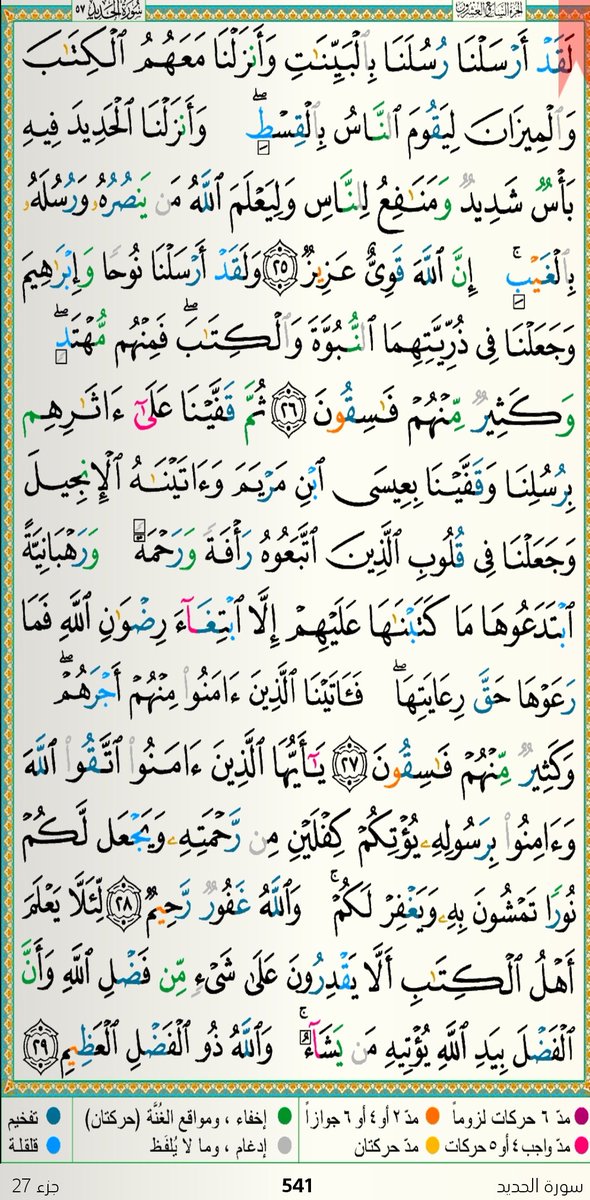 الجزء السابع والعشرون سورة الحديد ٥٧
لَقَدْ أَرْسَلْنَا رُسُلَنَا بِالْبَيِّنَٰتِ وَأَنزَلْنَا مَعَهُمُ الْكِتَٰبَ
وَالْمِيزَانَ لِيَقُومَ النَّاسُ بِالْقِسْطِۖ وَأَنزَلْنَا الْحَدِيدَ فِيهِ
بَأْسٌ شَدِيدٌ وَمَنَٰفِعُ لِلنَّاسِ وَلِيَعْلَمَ اللَّهُ مَن يَنصُرُهُۥ وَرُسُلَهُۥ
بِالْغَيْبِۚ إِنَّ اللَّهَ قَوِىٌّ عَزِيزٌ ٢٥ وَلَقَدْ أَرْسَلْنَا نُوحًا وَإِبْرَٰهِيمَ
وَجَعَلْنَا فِى ذُرِّيَّتِهِمَا النُّبُوَّةَ وَالْكِتَٰبَۖ فَمِنْهُم مُّهْتَدٍۖ
وَكَثِيرٌ مِّنْهُمْ فَٰسِقُونَ ٢٦ ثُمَّ قَفَّيْنَا عَلَىٰٓ ءَاثَٰرِهِم
بِرُسُلِنَا وَقَفَّيْنَا بِعِيسَى ابْنِ مَرْيَمَ وَءَاتَيْنَٰهُ الْإِنجِيلَ
وَجَعَلْنَا فِى قُلُوبِ الَّذِينَ اتَّبَعُوهُ رَأْفَةً وَرَحْمَةً وَرَهْبَانِيَّةً
ابْتَدَعُوهَا مَا كَتَبْنَٰهَا عَلَيْهِمْ إِلَّا ابْتِغَآءَ رِضْوَٰنِ اللَّهِ فَمَا
رَعَوْهَا حَقَّ رِعَايَتِهَاۖ فَـَٔاتَيْنَا الَّذِينَ ءَامَنُوا مِنْهُمْ أَجْرَهُمْۖ
وَكَثِيرٌ مِّنْهُمْ فَٰسِقُونَ ٢٧ يَٰٓأَيُّهَا الَّذِينَ ءَامَنُوا اتَّقُوا اللَّهَ
وَءَامِنُوا بِرَسُولِهِۦ يُؤْتِكُمْ كِفْلَيْنِ مِن رَّحْمَتِهِۦ وَيَجْعَل لَّكُمْ
نُورًا تَمْشُونَ بِهِۦ وَيَغْفِرْ لَكُمْۚ وَاللَّهُ غَفُورٌ رَّحِيمٌ ٢٨ لِّئَلَّا يَعْلَمَ
أَهْلُ الْكِتَٰبِ أَلَّا يَقْدِرُونَ عَلَىٰ شَىْءٍ مِّن فَضْلِ اللَّهِ وَأَنَّ
الْفَضْلَ بِيَدِ اللَّهِ يُؤْتِيهِ مَن يَشَآءُۚ وَاللَّهُ ذُو الْفَضْلِ الْعَظِيمِ ٢٩
مدّ ٦ حركات لزوماً مدّ ٢ أو ٤ أو ٦ جوازاً إخفاء ، ومواقع الغُنَّة (حركتان) تفخيم
مدّ واجب ٤ أو ٥ حركات مدّ حركتان إدغام ، وما لا يُلفَظ قلقلة
سورة الحديد 541 جزء 27